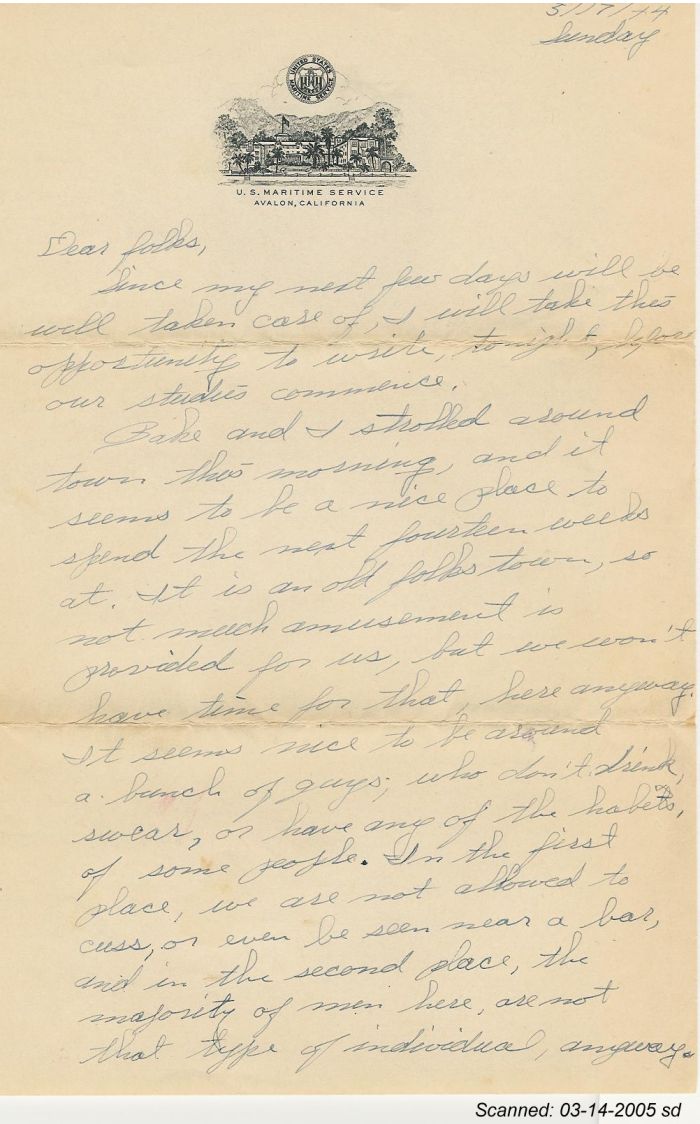 5/7/44
Sunday
UNITED STATES MARITIME SERVICE
U.S. MARITIME SERVICE
AVALON, CALIFORNIA
Dear folks,
Since my next few days will be
well taken care of, I will take this
opportunity to write, tonight, before
our studies commence.
Bake and I strolled around
town this morning, and it
seems to be a nice place to
spend the next fourteen weeks
at. It is an old folks town, so
not much amusement is
provided for us, but we won't
have time for that, here anyway.
It seems nice to be around
a bunch of guys, who don't drink,
swear, or have any of the habits,
of some people. In the first
place, we are not allowed to
cuss, or even be seen near a bar,
and in the second place, the
majority of men here, are not
that type of individual, anyway.
Scanned: 03-14-2005 sd